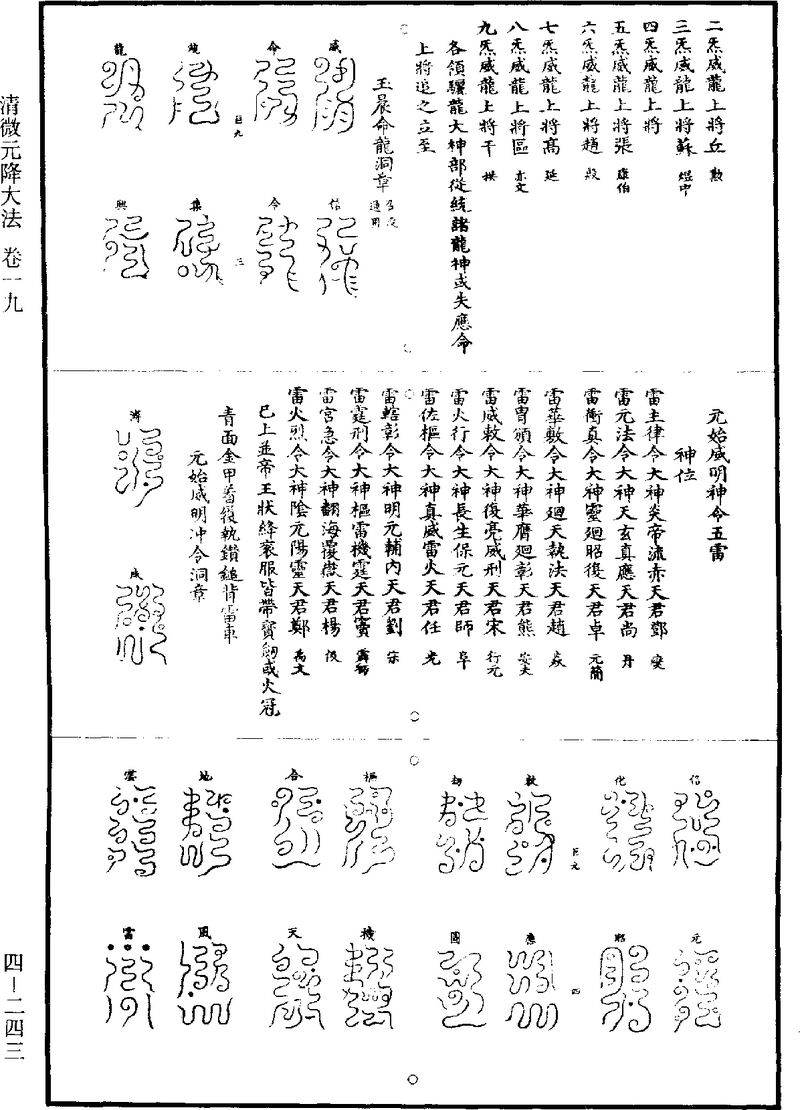 二炁威龍上將丘 勲
三炁威龍上將蘇 焜中
四炁威龍上將
五炁威龍上將張 雍伯
六炁威龍上將趙 殷
七炁威龍上將髙 延
八炁威龍上將區 亦文
九炁威龍上將干 拱
各領驪龍大神部從統諸龍神或失應命
上將追之立至
玉晨命龍洞章 通用
威
信
命
令
巨九
三
燒
集
龍
興
元始威明神令五雷
神位
雷主律令大神炎帝流赤天君鄧 燮
雷元法令大神天玄真應天君尚 丹
雷衝真令大神靈廻昭復天君卓 元簡
雷華敷令大神廻天執法天君趙 焱
雷胄頒令大神華膺廻彰天君熊 安夫
雷威敕令大神復亮威刑天君宋 行元
雷火行令大神長生保元天君師 阜
雷佐樞令大神真威雷火天君任 光
雷轄彰令大神明元輔內天君劉 琮
雷霆刑令大神樞雷機霆天君竇
雷宫急令大神翻海覆嶽天君楊 俊
雷火烈令大神陰元陽靈天君鄭 禹文
已上並帝王狀絳衮服皆帶寳劒或火冠
青面金甲著履執鑽鎚背雷車
元始威明冲令洞章
濟
咸
信
元
化
昭
巨九
四
敕
應
劫
圖
樞
機
合
天
地
風
雲
雷
清微元降大法 卷一九
四—二四三